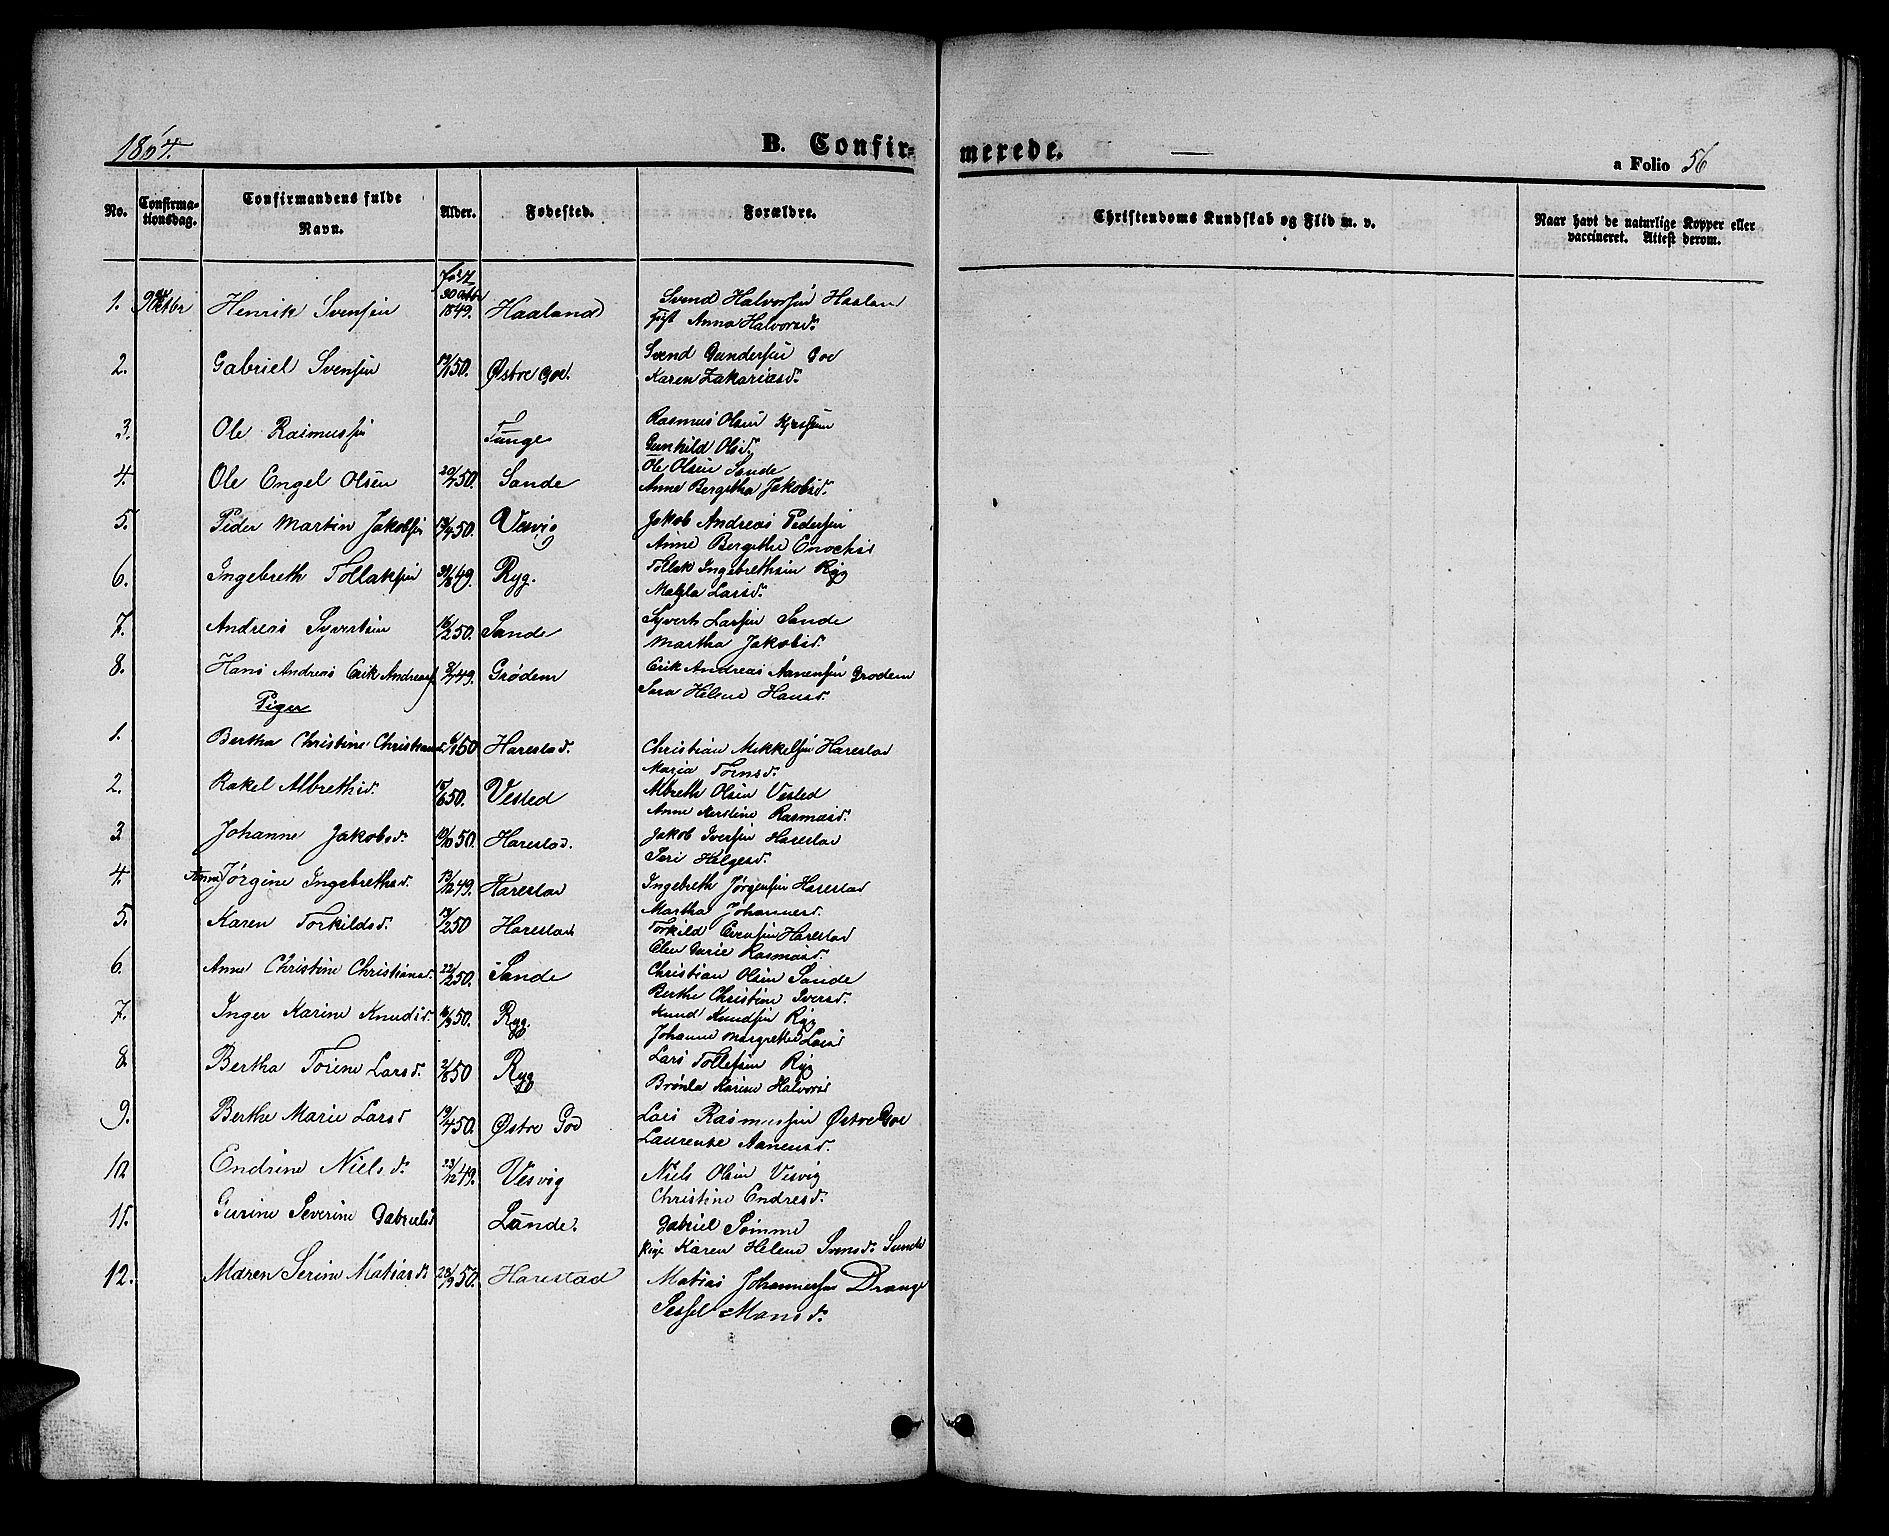 1864.
B. Confirmerede.
a Folio 56
No. Confirmationsdag. Confirmandens fulde Navn. Alder. Fødested. Forældre. Christendoms Kundskab og Flid m. v. Naar havt de naturlige Kopper eller vaccineret. Attest derom.
1. 9 Oktbr Henrik Svensen født 30 Octbr 1849. Haaland Svend Halvorsen Haalan
Anna Halvorsd.
2. Gabriel Svensen 50. Østre Goe. Svend Gundersen Goe
Karen Zakariasd.
3. Ole Rasmussen Tunge Rasmus Olsen
Gunhild Olsd.
4. Ole Engel Olsen 20/7 50. Sande Ole Olsen Sande
Anne Bergitha Jakobsd.
5. Peder Martin Jakobsen 19/4 50. Vesvig Jakob Andreas Pedersen
Anne Bergithe Enochsd
6. Ingebreth Tollaksen 49. Ryg. Tollak Ingebrethsen Ryg
Malla Larsd.
7. Andreas Syvertsen 16/2 50. Sande Syvert Larsen Sande
Martha Jakobsd.
8. Hans Andreas Erik Andreas 49. Grødem Erik Andreas Aanensen Grødem
Sara Helene Hansd.
Piger
1. Bertha Christine Christians 50 Harestad. Christian Mikkelsen Harestad
Maria Tornsd.
2. Rakel Albrethsd. 50. Vested Albreth Olsen Vested
Anne Kerstine Rasmusd.
3 Johanne Jakobsd. 50. Harestad. Jakob Iversen Harestad
Siri Helgesd.
4. Anne Jørgine Ingebrethsd. 13/12 49. Harestad Ingebreth Jørgensen Harestad
Martha Johannesd.
5. Karen Torkildsd. 19/2 50 Harestad Torkild Evensen Harestad
Elen Gurie Rasmusd.
6. Anne Christine Christiansd. 22/2 50. Sande Christian Olsen Sande
Berthe Christine Iversd.
7. Inger Karine Knudsd. 50. Ryg. Knud Knudsen Ryg
Johanne Margrethe Larsd
8 Bertha Torine Larsd. 2/8 50 Ryg Lars Tollefsen Ryg
Brønla Karine Halvorsd
9. Berthe Marie Larsd 19/4 50. Østre Goe Lars Rasmussen Østre Goe
Laurentse Aanensd.
10 Endrine Nielsd. 23/12 49. Vesvig Niels Olsen Vesvig
Christine Endresd.
11. Gurine Severine Gabrielsd Sande. Gabriel Sømme
Pige Karen Helene Svensd. Sunde
12. Maren Serine Matiasd. 28/9 50. Harestad Matias Johannessen Drange
Sessel Monsd.